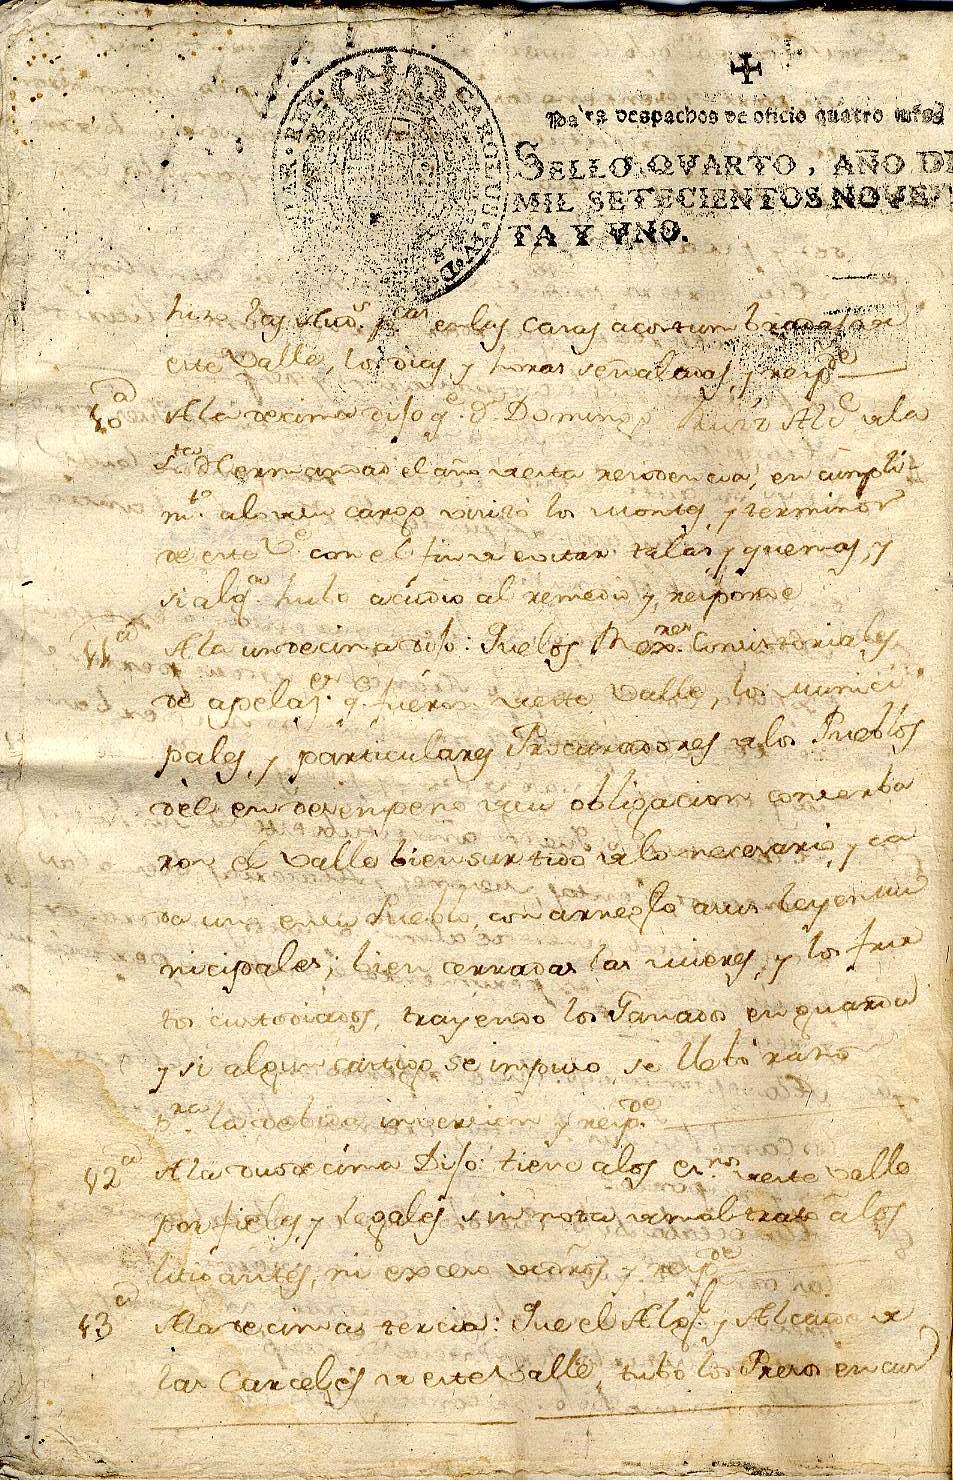 ✠
Para despachos de oficio quatro mrs.
SELLO QVARTO, AÑO DE
MIL SETECIENTOS NOVEN
TA Y VNO.
CAROLUS IV D
HISPANIAR REX
hizo las Aud.s p.cas en las casas acostumbradas
este Valle, los dias, y horas señalados, y resp.de
10.a A la decima dijo q.e D.n Domingo Al.e de la
S.ta Hermandad el año de esta residencia, en cumpli
m.to a lo de su cargo visitó los Montes, y terminos
de este V.e con el fin de evitar talas, y quemas, y
si alg.a hubo acudio al remedio y responde
11.a A la undecima dijo: Que los Rex.res Consistoriales
de apelaz.es q.e fueron de este Valle, los Munici
pales, y particulares Procuradores de los Pueblos
del en desempeño de su obligacion conserba
ron el Valle bien surtido de lo necesario, y ca
da uno en su Pueblo, con arreglo a sus leyes mu
nicipales; bien cerradas las mieses, y los fru
tos custodiados, trayendo los Ganados en guarda
y si algun castigo se impuso se llebó
p.ra la debida inversion y resp.de
12.a A la duodecima Dijo: tiene a los es.nos de este Valle
por fieles, y legales sin nota de mal trato a los
litigantes, ni exceso de dros, y resp.de
13.a A la decima tercia: Que el Alg.l y Alcaide de
las Carceles de este Valle, tubo los Presos en cus